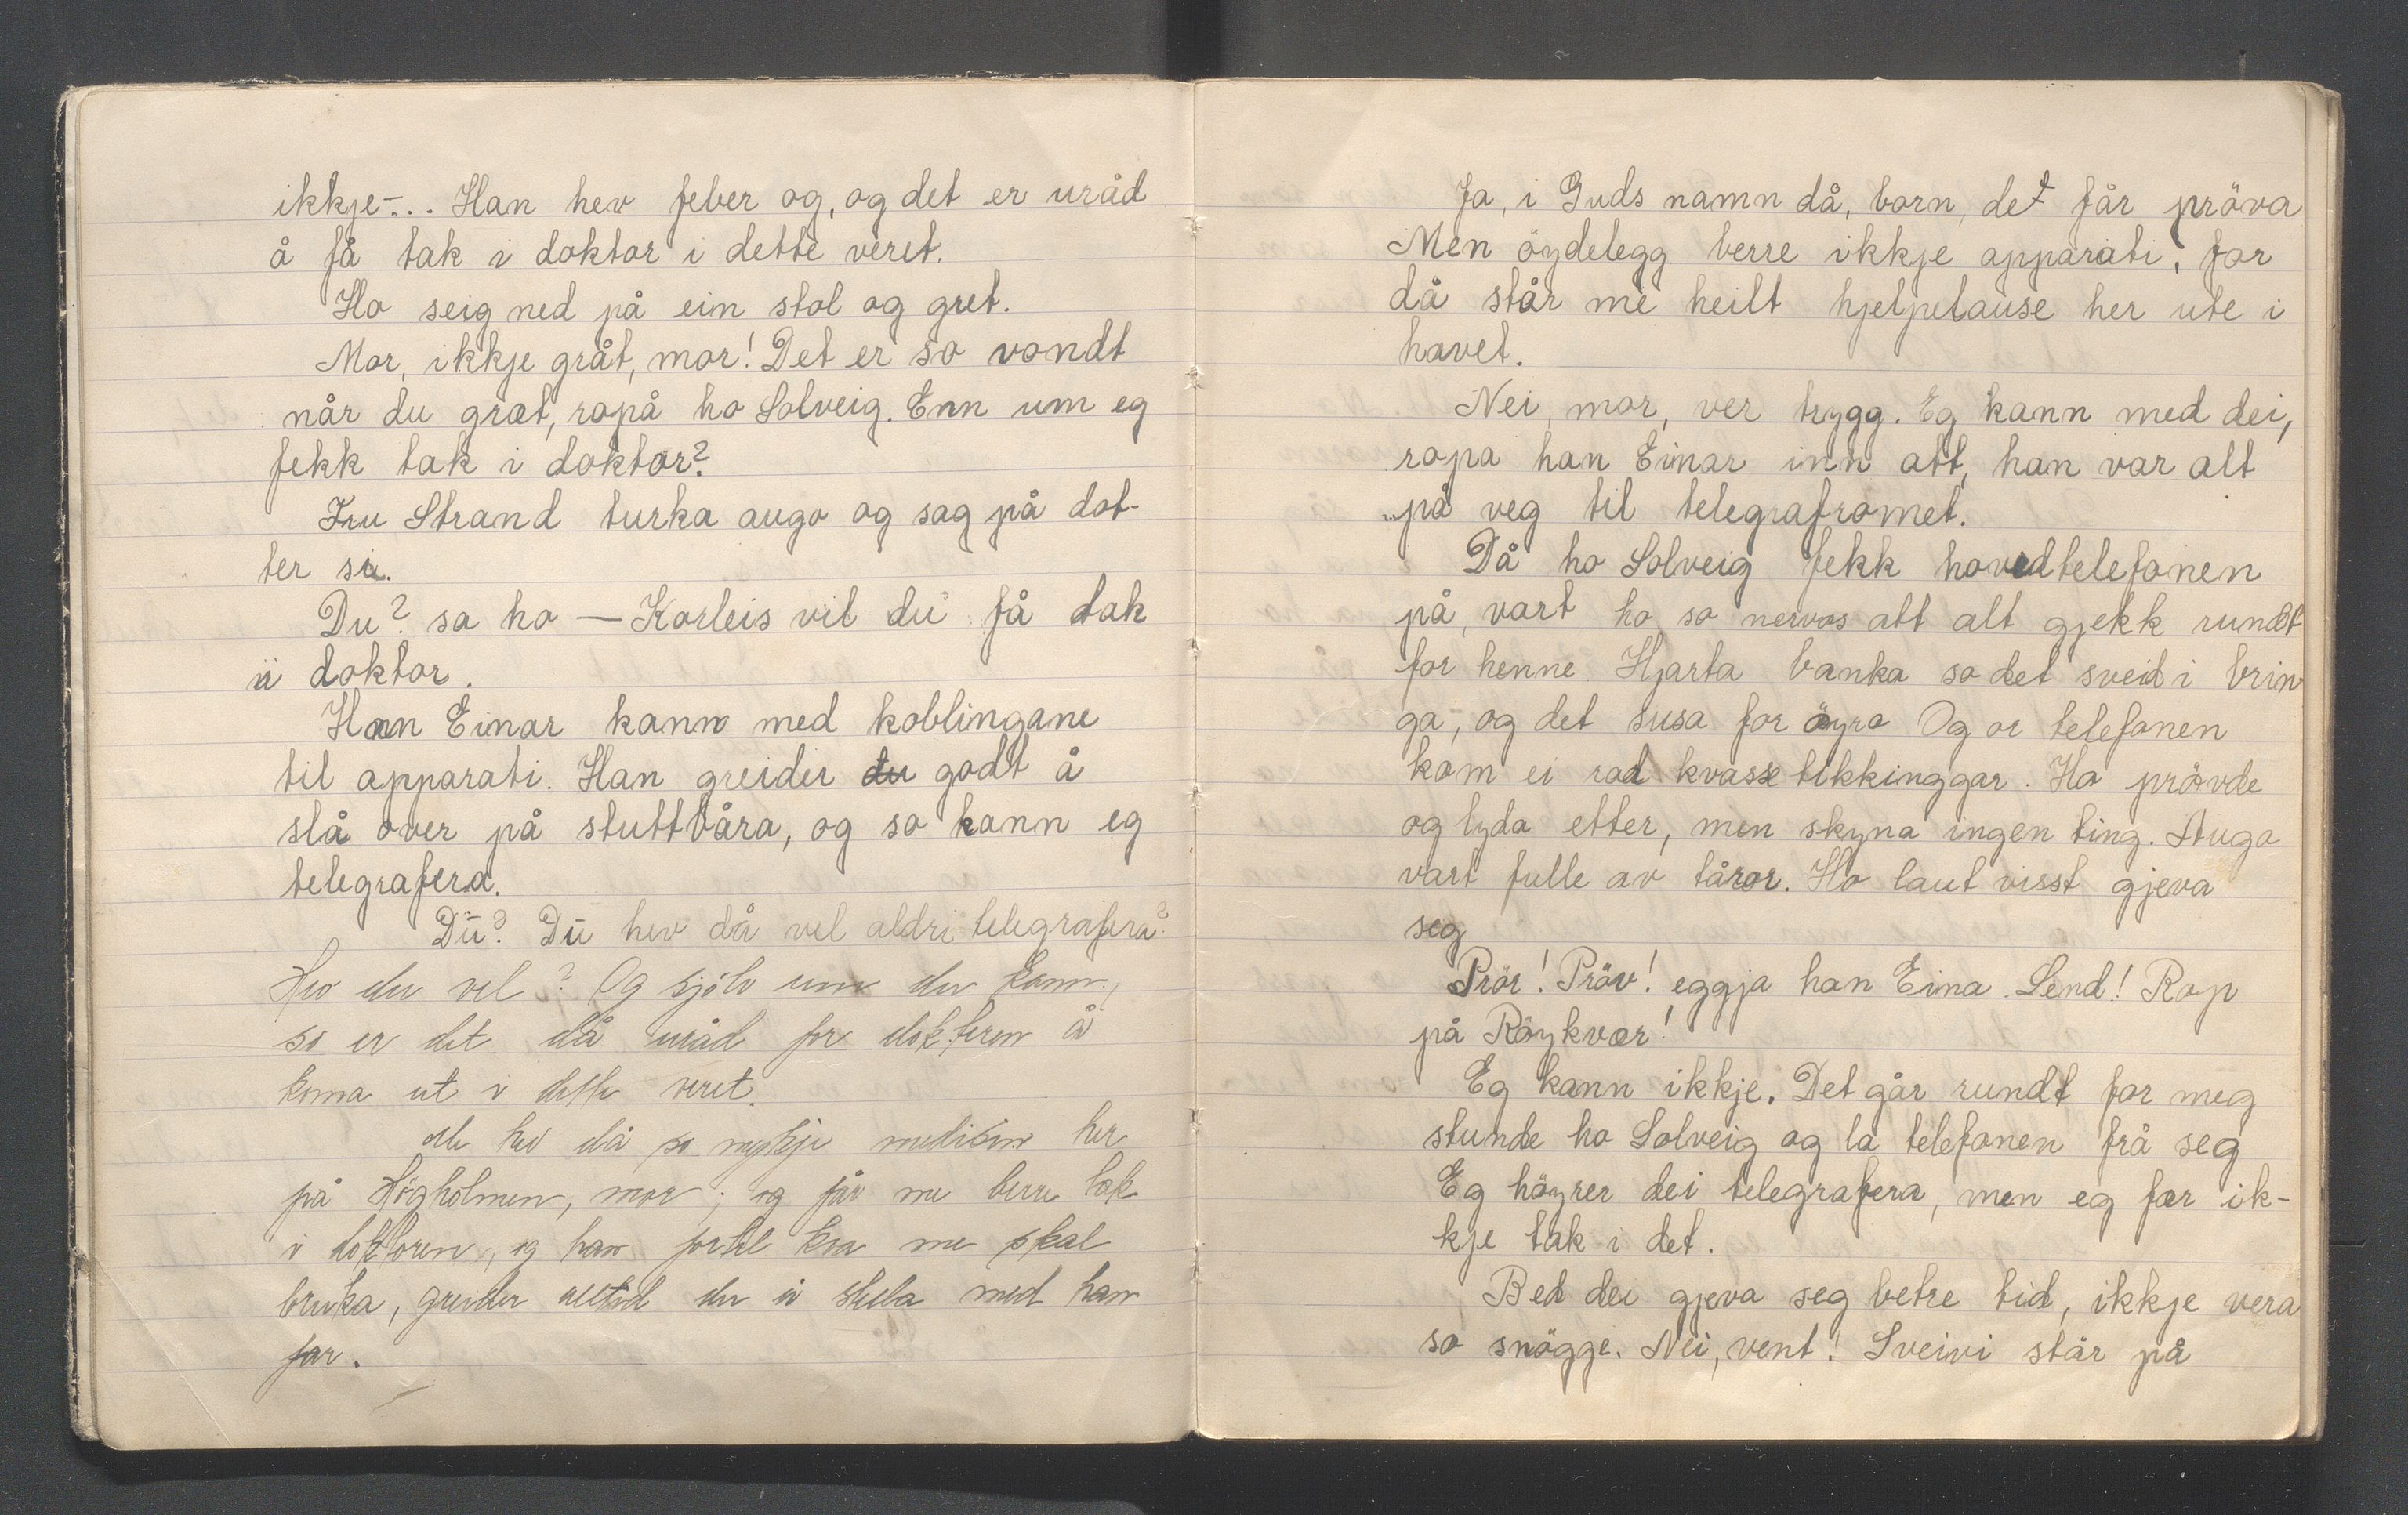 ikkje-... Han hev feber og, og det er uråd
å få tak i doktor i dette veret.
Ho seig ned på ein stol og gret.
Mor, ikkje gråt, mor! Det er so vondt
når du græt, ropå ho Solveig. Enn um eg
fekk tak i doktor?
Fru Strand turka augo og sag på dot-
ter si.
Du? sa ho — Korleis vil du få tak
i doktor.
Han Einar kann med koblingane
til apparati. Han greider du godt å
slå over på stuttbåra, og so kann eg
telegrafera.
Du? Du hev då vel aldri telegrafera?
Hev du vel? Og sjölv um du kann,
so er det då uråd for dokteren å
koma ut i dette veret.
Me hev då so mykje medisin her
på Högholmen, mor; og får me berre tak
i doktoren, og han fortel kva me skal
bruka, greider alltid du å stella med han
far.
Ja, i Guds namn då, born, det får pröva
Men öydelegg berre ikkje apparati, for
då står me heilt hjelpelause her ute i
havet.
Nei, mor, ver trygg. Eg kann med dei,
ropa han Einar inn att, han var alt
på veg til telegrafromet.
Då ho Solveig fekk hovedtelefonen
på, vart ho so nervos att alt gjekk rundt
for henne. Hjarta banka so det sveid i brin
ga, og det susa for öyro Og or telefonen
kom ei rad kvasse tikkinggar. Ho prövde
og lyda etter, men skyna ingen ting. Augo
vart fulle av tåror. Ho laut visst gjeva
seg
Prör! Pröv! eggja han Eina. Send! Rop
på Röykvær!
Eg kann ikkje. Det går rundt for meg
stunde ho Solveig og la telefonen frå seg
Eg höyrer dei telegrafera, men eg fær ik-
kje tak i det.
Bed dei gjeva seg betre tid, ikkje vera
so snögge. Nei, vent! Sveivi står på